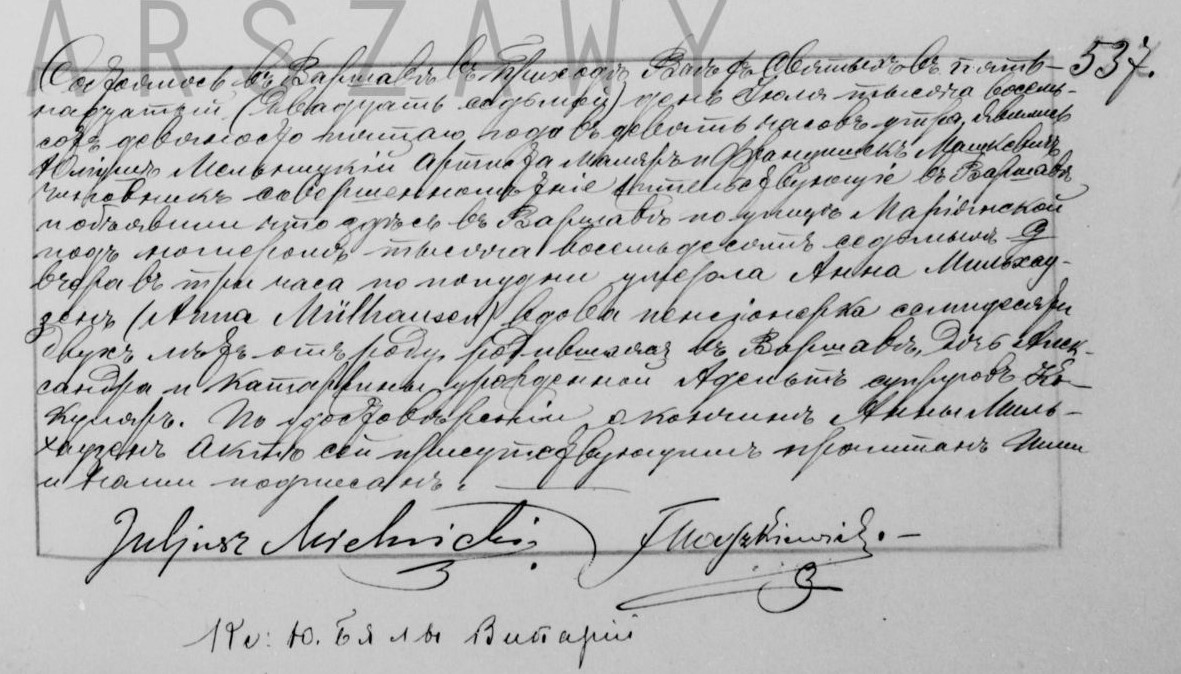 ARSZAWY
Состоялось въ Варшавѣ въ приходѣ Всѣхъ Святыхъ въ пять- 537.
надцатый (двадцать седьмой) день Іюля тысяча восемь-
сотъ девяносто пятаго года въ девять часовъ утра. Явились
Юліушъ Мельницкій артистъ маляръ и Францишекъ Машкевичъ
чиновникъ совершеннолѣтніе жительствующіе въ Варшавѣ
и объявили что здѣсь въ Варшавѣ по улицѣ Маріянской
подъ номеромъ тысяча восемьдесятъ седьмымъ
вчера въ три часа по полудни умерла Анна Мильхау-
зенъ (Anna Mülhausen) вдова пенсіонерка семидесяти
двухъ лѣтъ отъ роду, родившаяся въ Варшавѣ, дочь Алек-
сандра и Катаржины урожденной супруговъ Ко-
куляръ. По удостовѣреніи о кончинѣ Анны Миль-
хаузенъ актъ сей присутствующимъ прочитанъ Ими
и Нами подписанъ.
Juljusz Mielnicki. F Maszkiewicz.
Кс: Ю. Бялы Викарій